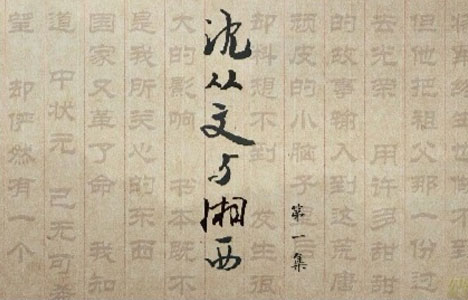 沈从文与湘西
第一集
但他把祖父那一份过
去光荣 用许多甜甜
的故事输入到这荒唐
顽皮的小脑子
却料想不到 发生很
大的影响 书本既不
是我所关心的东西
国家又革了命 我知
道 中状元 已无可希
望 却俨然有一个